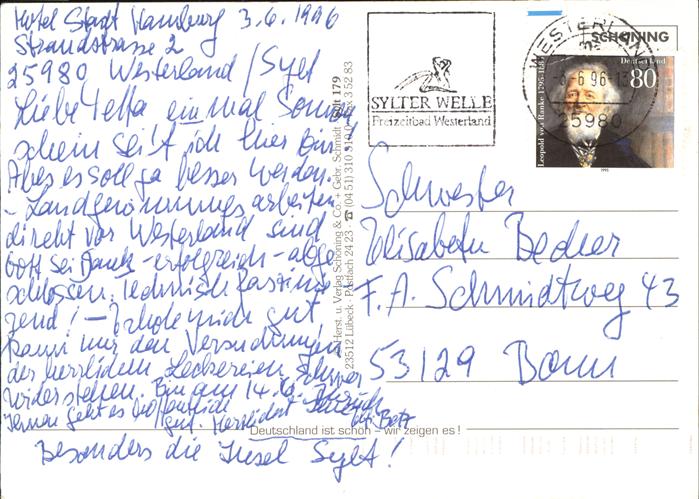 Hotel Stadt Hamburg 3.6.1996
Strandstrasse 2
25980 Westerland/Sylt
Liebe einmal Sonnen
schein seit ich hier bin!
Aber es soll ja besser werden.
- Landgewinnungsarbeiten
direkt vor Westerland sind
Gott sei Dank - erfolgreich - abge
schlossen. Technisch faszinie
rend! - Erhole mich gut
kann nur den Versuchungen
der herrlichen Leckereien schwer
widerstehen. Bin am 14.6. zurück
Ihnen geht es hoffentlich
gut. Herzlichst
Besonders die Insel Sylt!
Herst. u. Verlag Schöning & Co. + Gebr. Schmidt
23512 Lübeck · Postfach 24 23 · ☎ (04 51) 310 3
SYLTER WELLE
Freizeitbad Westerland
WESTERLAND
-6.6.96-13
25980
SCHÖNING
Deutschland
80
Leopold von Ranke 1795-1886
1995
Schwester
Elisabeth Becker
F.A. Schmidtweg 43
53129 Bonn
Deutschland ist schön – wir zeigen es!